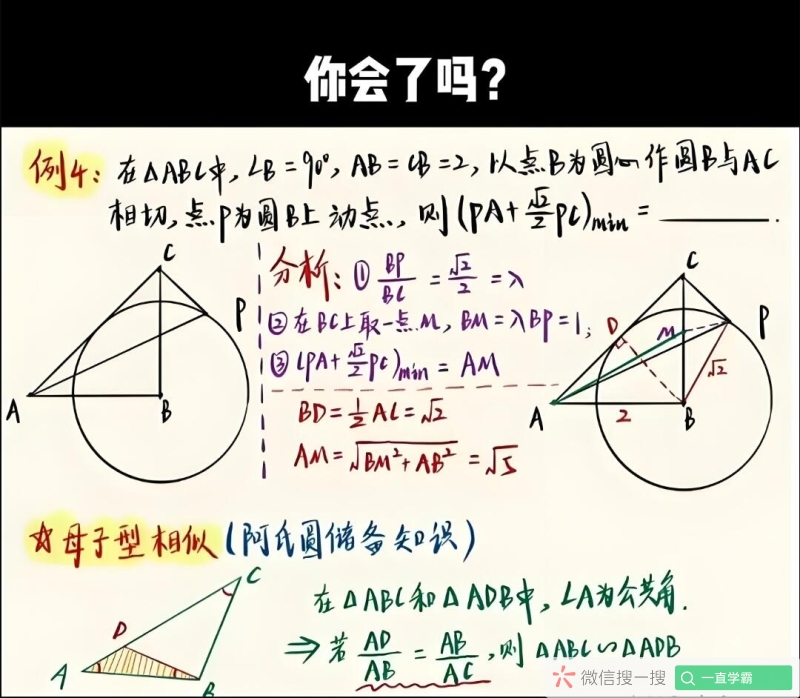 你会了吗?
例4: 在△ABC中, ∠B=90°, AB=CB=2, 以点B为圆心作圆B与AC
相切, 点P为圆B上动点, 则(PA+√2/2PC)min=______.
C
P
A
B
分析: ①BP/BC=√2/2=λ
②在BC上取一点M, BM=λBP=1;
③(PA+√2/2PC)min=AM
BD=1/2AC=√2
AM=√(BM²+AB²)=√5
C
D
M
P
√2
A
2
B
☆母子型相似(阿氏圆储备知识)
C
D
A
B
在△ABC和△ADB中, ∠A为公共角.
⇒若AD/AB=AB/AC, 则△ABC∽△ADB
微信搜一搜
一直学霸